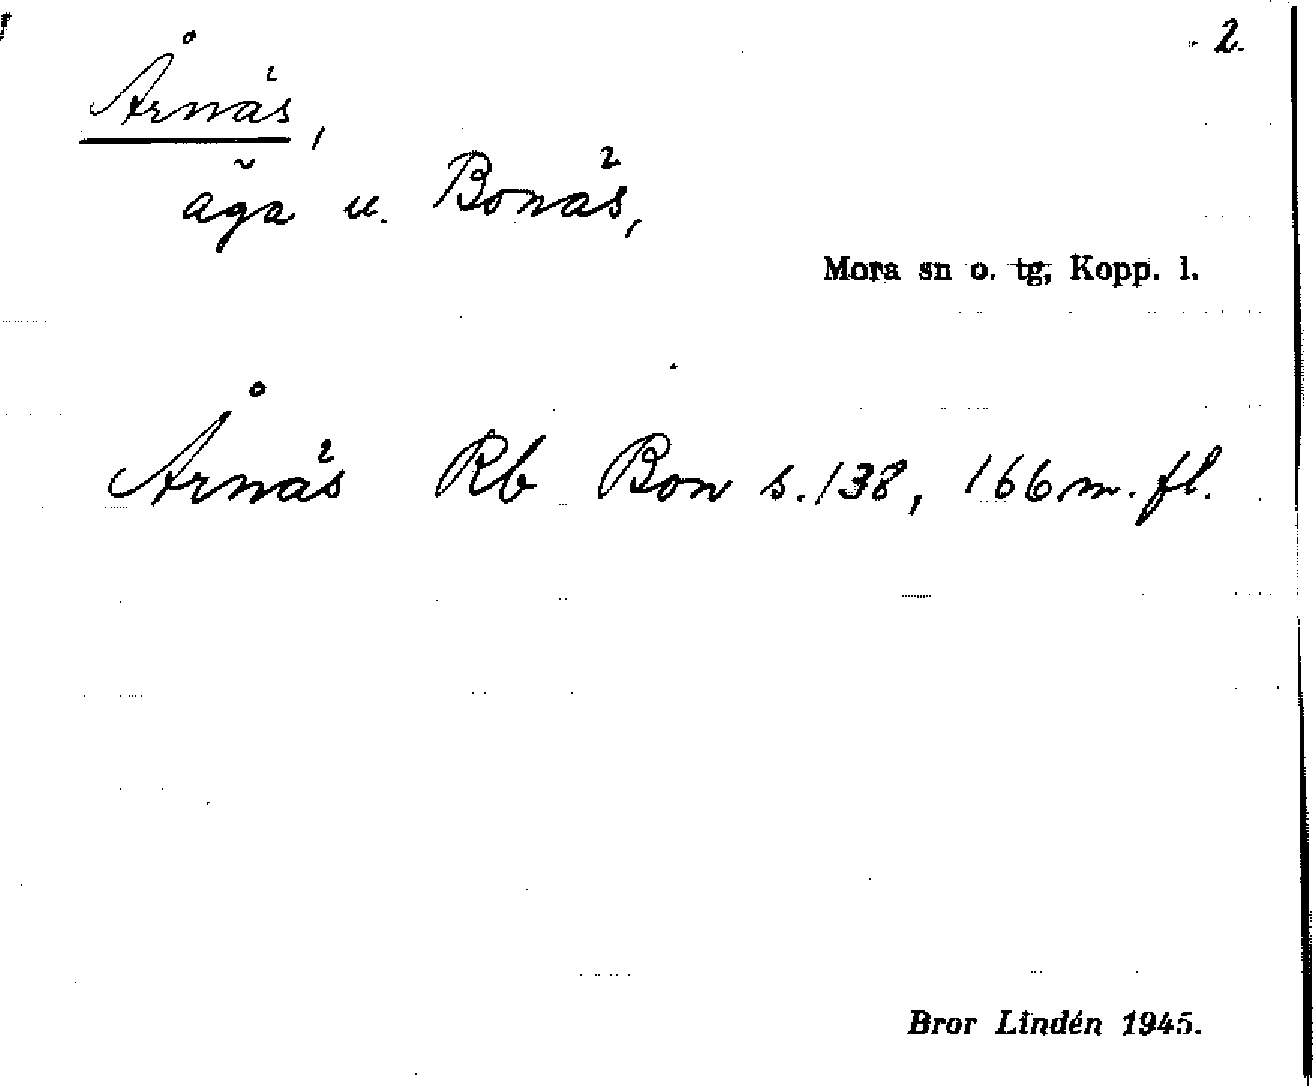 2.
Årnäs,
äga u. Bonäs,
Mora sn o. tg, Kopp. l.
Årnäs Rb Bon s. 138, 166 m. fl.
Bror Lindén 1945.